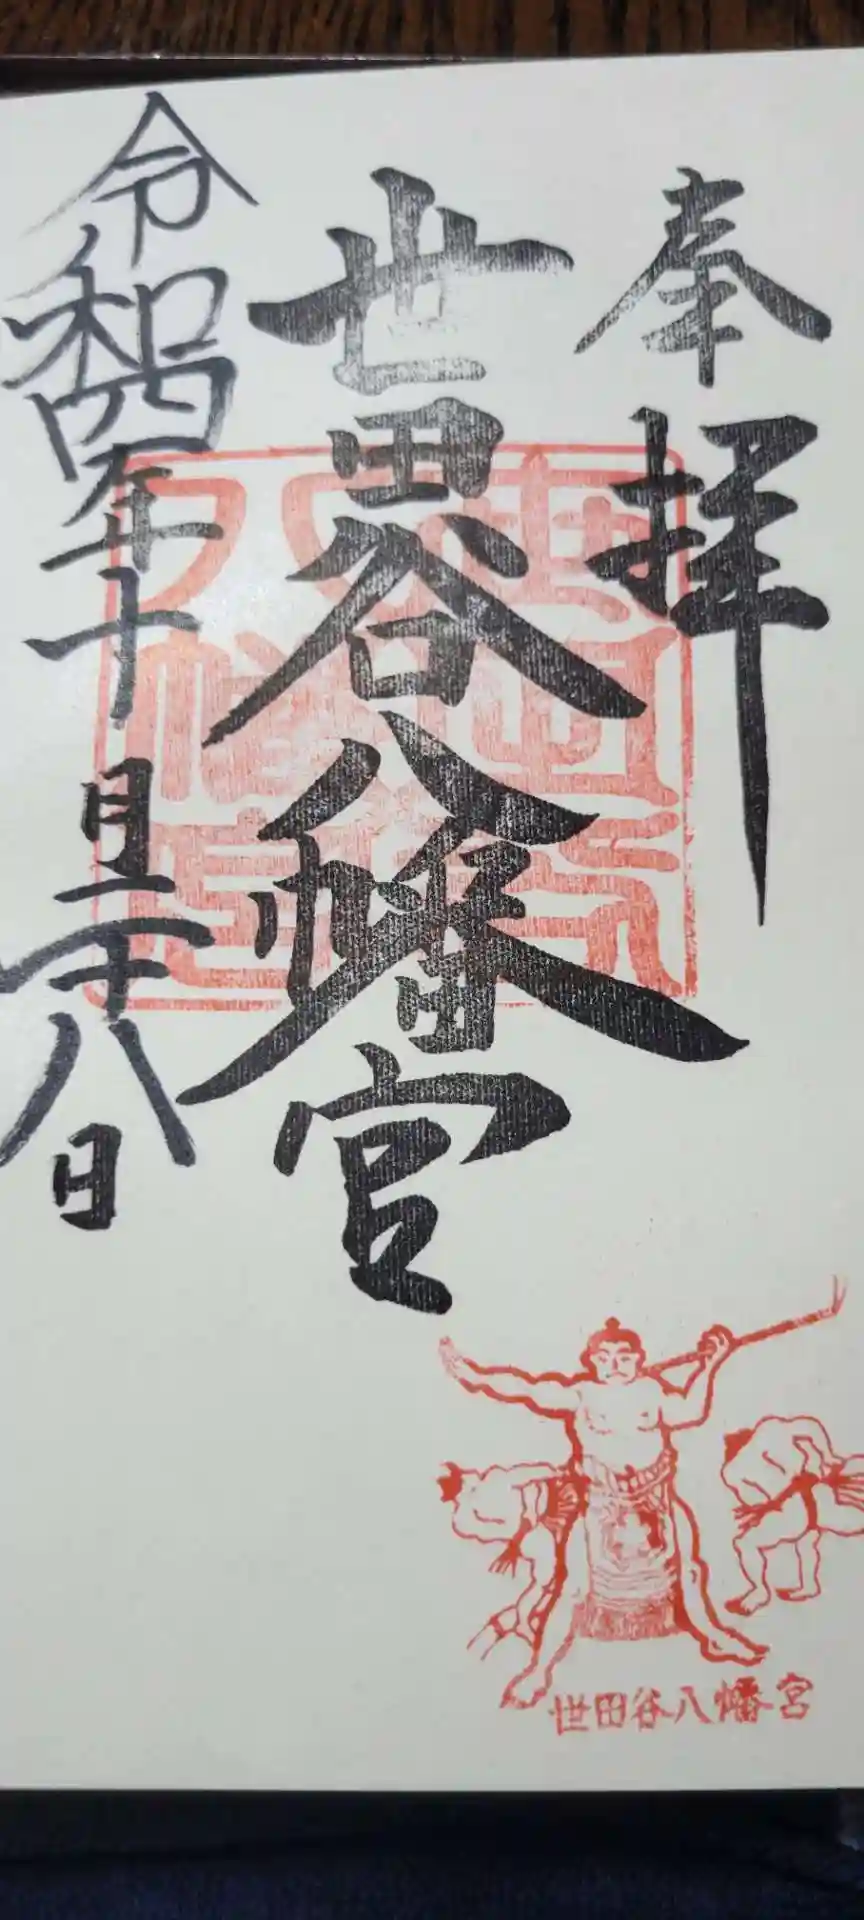 奉拝
世田谷八幡宮
令和四年十月二十八日
世田谷
八幡宮
世田谷八幡宮